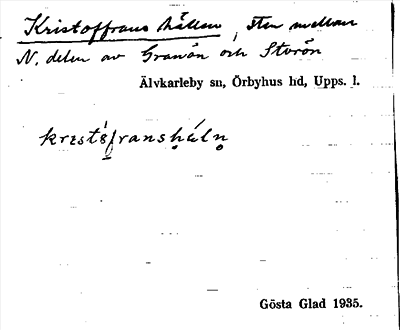 Kristoffrans hällen, Sten mellan
N. delen av Granön och Storön
Älvkarleby sn, Örbyhus hd, Upps. l.
Gösta Glad 1935.